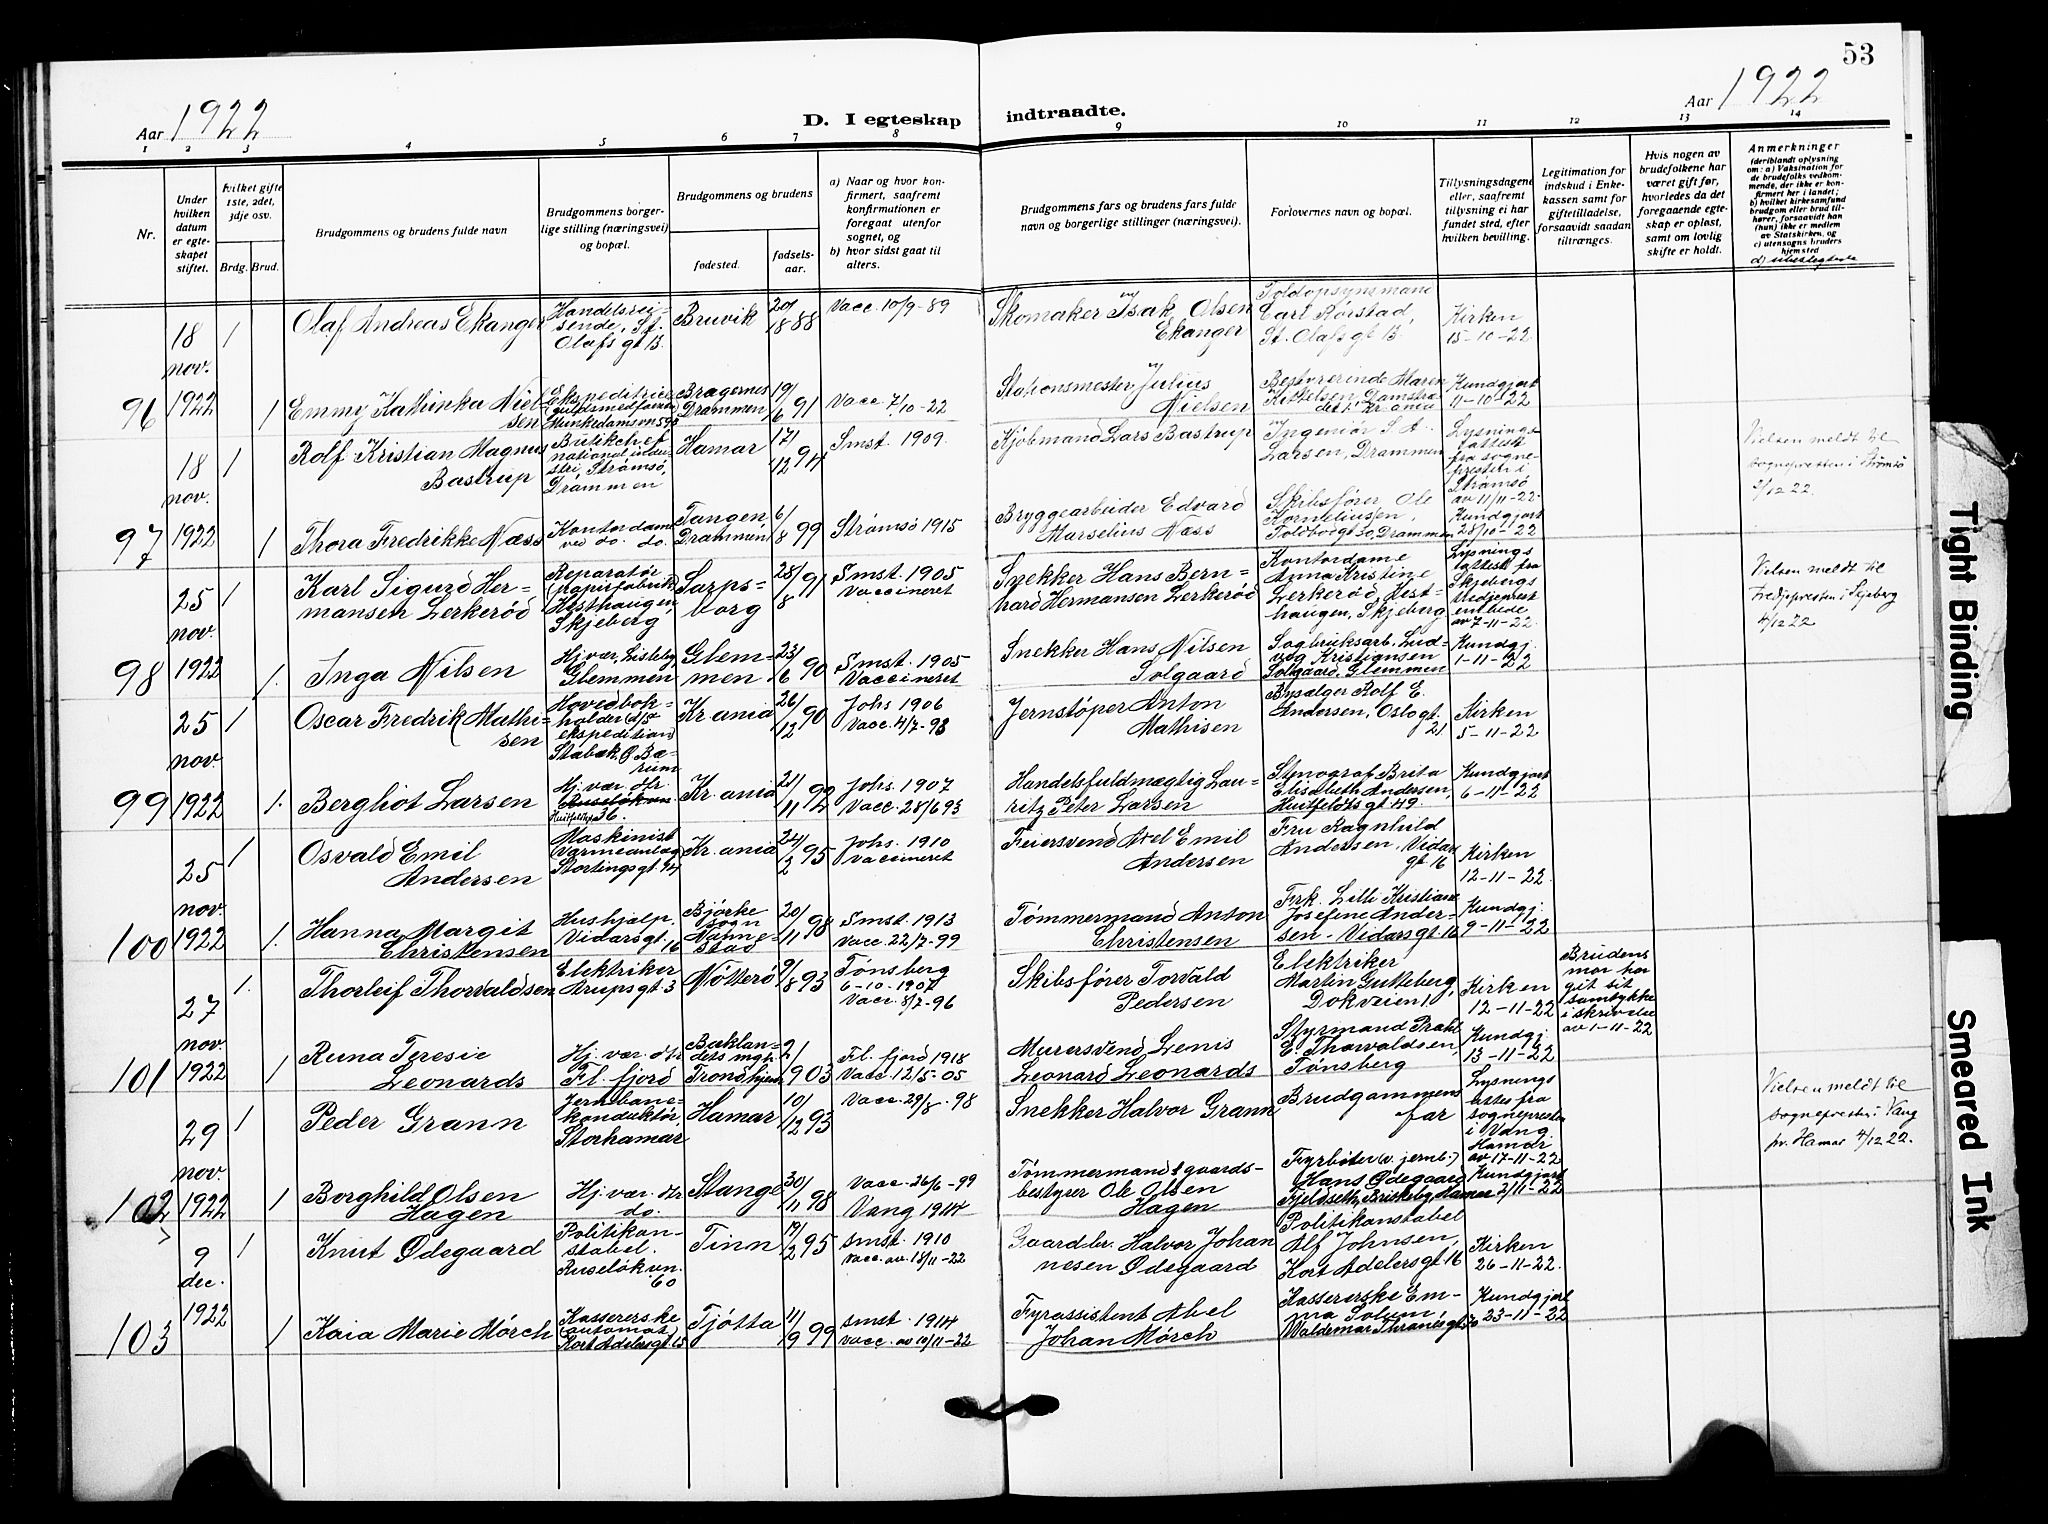 53
Aar 1922
D. I egteskap indtraadte.
Aar 1922
1 2 3 4 5 6 7 8 9 10 11 12 13 14
Nr.
Under hvilken datum er egteskapet stiftet.
hvilket gifte 1ste, 2det, 3dje osv.
Brdg. Brud.
Brudgommens og brudens fulde navn
Brudgommens borgerlige stilling (næringsvei) og bopæl.
Brudgommens og brudens
fødested. fødselsaar.
a) Naar og hvor konfirmert, saafremt konfirmutionen er foregaat utenfor sognet, og
b) hvor sidst gaat til alters.
Brudgommens fars og brudens fars fulde navn og borgerlige stillinger (næringsvei).
Forlovernes navn og bopæl.
Tillysningsdagene eller, saafremt tillysning ei har fundet sted, efter hvilken bevilling.
Legitimation for indskud i Enkekassen samt for giftetilladelse, forsaavidt saadan tiltrænges.
Hvis nogen av brudefolkene har været gift før, hvorledes da det foregaaende egteskap er opløst, samt om lovlig skifte er holdt.
Anmerkninger
(deriblandt oplysning om: a) Vaksination for de brudefolks vedkommende, der ikke er konfirmert her i landet;
b) hvilket kirkesamfund brudgom eller brud tilhører, forsaavidt han (hun) ikke er medlem av Statskirken, og
c) utensogns bruders hjemsted
18 nov. 1
Olaf Andreas Ekanger
Handelsreisende, St. Olafs gt 13.
Bruvik
20/1 1888
Vacc. 10/9-89
Skomaker Isak Olsen Ekanger
Toldopsynsmand Carl Rørstad, St. Olafs gt 13.
Kirken 15-10-22
96 1922 1
Emmy Kathinka Nielsen
Ekspeditrice (guldsmedforretn) Munkedamsvn 59
Bragernes Drammen
19/6 91
Vacc. 7/10-22
Stationsmester Julius Nielsen
Bestyrerinde Maren Kittelsen,
Kundgjort 11-10-22
18 nov. 1
Rolf Kristian Magnus Bastrup
Butikchef national industri, Strømsø, Drammen
Hamar
17/12 94
Smst. 1909.
Kjøbmand Lars Bastrup
Ingeniør S. A. Larsen, Drammen
Lysningsattest fra sogneprester i Strømsø av 11/11-22.
Vielsen meldt til sognepresten i Strømsø 2/12 22.
97 1922 1
Thora Fredrikke Næss
Kontordame ved do. do.
Tangen, Drammen
6/8 99
Strømsø 1915
Bryggearbeider Edvard Marselius Næss
Skibsfører Ole Korneliussen, Toldbodgt 30, Drammen
Kundgjort 28/10-22
25 nov. 1
Karl Sigurd Hermansen Lerkerød
Reparatør (papirfabrik) Hesthaugen Skjeberg
Sarpsborg
28/8 91
Smst. 1905 Vaccineret
Snekker Hans Bernhard Hermansen Lerkerød
Kontordame Anna Kristine Lerkerød, Hesthaugen, Skjeberg
Lysningsattest fra Skjebergs tredjeprestembede av 7-11-22.
Vielsen meldt til tredjepresten i Skjeberg 4/12 22
98 1922 1.
Inga Nilsen
Hj. vær, Lisleby Glemmen
Glemmen
23/6 90
Smst. 1905 Vaccineret
Snekker Hans Nilsen Solgaard
Sagbruksarb. Ludvig Kristiansen Solgaard, Glemmen
Kundgj. 1-11-22
25 nov. 1
Oscar Fredrik Mathisen
Hovedbokholder (d/s ekspedition) Stabæk, Ø. Bærum
Kr.ania
26/12 90
Johs 1906 Vacc. 4/7-93
Jernstøper Anton Mathisen
Bysælger Rolf E. Andersen, Oslogt. 21.
Kirken 5-11-22
99 1922 1.
Berghot Larsen
Hj. vær. Hr.
Huitfeldtsgt 36.
Kr.ania
21/11 92
Johs. 1907 Vacc. 28/6 93
Handelsfuldmægtig Lauritz Peter Larsen
Stenograf Brita Elisabeth Andersen, Huitfeldts gt. 49.
Kundgjort 6-11-22
25 nov. 1
Osvald Emil Andersen
Maskinist (varmeanlæg) Stortingsgt. 24
Kr.ania
24/2 95
Johs. 1910 vaccineret
Feiersvend Axel Emil Andersen
Fru Ragnhild Andersen, Vidars gt 16
Kirken 12-11-22.
100 1922 1.
Hanna Margit Christensen
Hushjælp. Vidarsgt. 16
Bjørke sogn
20/11 98
Smst. 1913 Vacc. 22/7-99
Tømmermand Anton Christensen
Frk. Lilli Kristiane Josefine Andersen. Vidarsgt 16
Kundgj. 9-11-22
27 nov. 1.
Thorleif Thorvaldsen
Elektriker Arupsgt. 3
Nøtterø
9/8 93
Tønsberg 6-10-1907 Vacc. 8/7-96
Skibsfører Torvald Pedersen
Elektriker Martin Gutteberg, Dokveien 1,
Kirken 12-11-22
Brudens mor har git sit samtykke i skrivelse av 1-11-22
101 1922 1
Runa Teresie Leonards
Hj. vær. dtr Fl. fjord
Baklandets mgh. Trondhjem
2/1 903
Fl. fjord 1918 Vacc. 12/5-05
Murersvend Lenis Leonard Leonards
Styrmand Prahl E. Thorvaldsen, Tønsberg
Kundgj. 13-11-22
29 nov. 1
Peder Grann
Jernbanekonduktør, Storhamar
Hamar
10/12 93
Vacc. 29/8-98
Snekker Halvor Grann
Brudgommens far
Lysningsattes fra sognepresten i Vang Hamar. av 17-11-22
Vielsen meldt til sognepresten i Vang pr. Hamar 4/12 22.
102 1922 1
Borghild Olsen Hagen
Hj. vær. dtr do.
Stange
30/11 98
Vacc. 26/6-99 Vang 1914
Tømmermand & gaardsbestyrer Ole Olsen Hagen
Fyrbøter (v. jernb.) Hans Ødegaard Fjeldseth, Briskeby, Hamar
Kundgjort 2/11-22
9 dec. 1
Knut Ødegaard
Politikonstabel. Ruseløkvn. 60
Tinn
19/2 95
smst. 1910 Vacc. av 18/11-22
Gaardbr. Halvor Johannesen Ødegaard
Politikonstabel Alf Johnsen, Kort Adelers gt. 16
Kirken 26-11-22.
103 1922 1
Kaia Marie Mörch
Kassererske (automat) Kort Adelersgt. 15
Tjøtta
11/9 99
smst. 1914 vacc. av 10/11-22
Fyrassistent Abel Johan Mörch
Kassererske Emma Solum, Waldemar Thranes gt 70
Kundgjort 23-11-22
Tight Binding
Smeared Ink